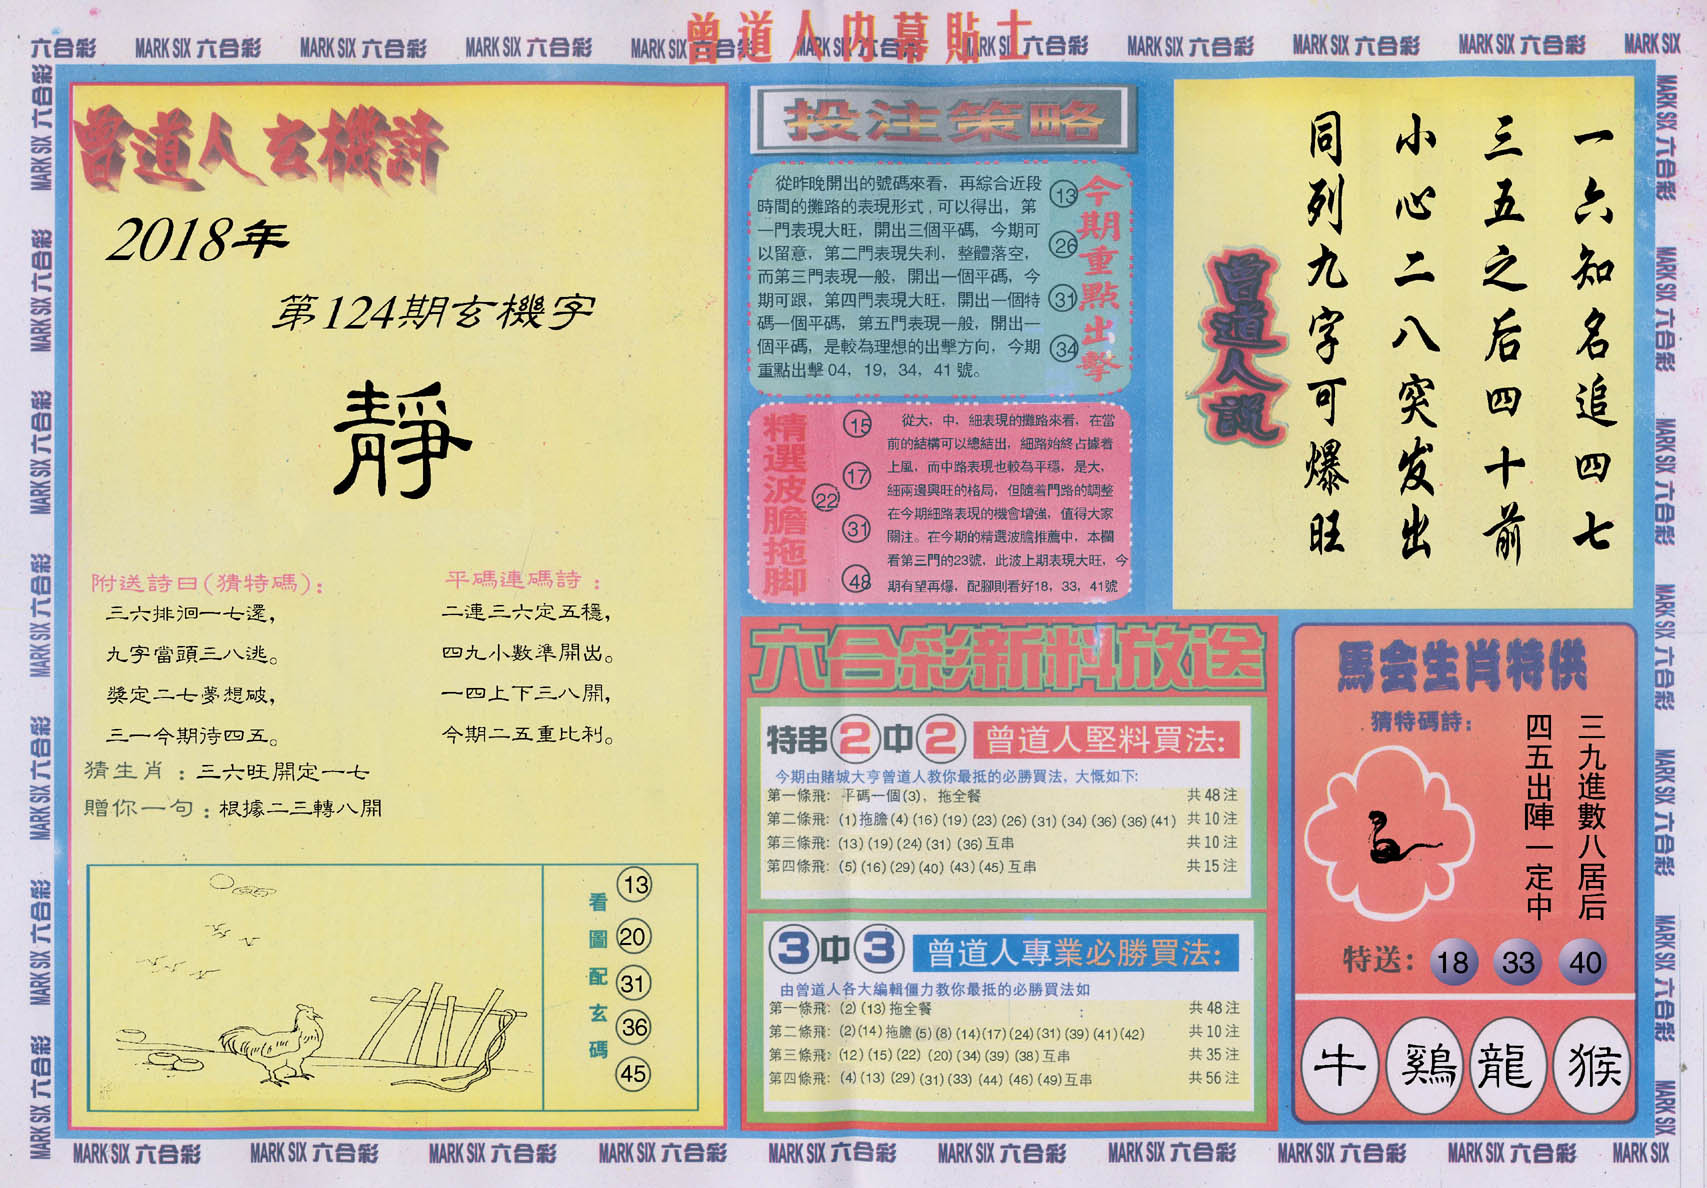 曾道人内幕貼士
六合彩 MARK SIX 六合彩 MARK SIX 六合彩 MARK SIX 六合彩 MARK SIX 六合彩 MARK SIX 六合彩 MARK SIX 六合彩 MARK SIX 六合彩 MARK SIX 六合彩 MARK SIX 六合彩 MARK SIX
曾道人玄機詩
2018年
第124期玄機字
靜
附送詩曰(猜特碼):
三六排徊一七還,
九字當頭三八逃。
獎定二七夢想破,
三一今期待四五。
平碼連碼詩:
二連三六定五穩,
四九小數準開出。
一四上下三八開,
今期二五重比利。
猜生肖:三六旺開定一七
贈你一句:根據二三轉八開
看圖配玄碼
13
20
31
36
45
投注策略
從昨晚開出的號碼來看,再綜合近段
時間的攤路的表現形式,可以得出,第
一門表現大旺,開出三個平碼,今期可
以留意,第二門表現失利,整體落空,
而第三門表現一般,開出一個平碼,今
期可跟,第四門表現大旺,開出一個特
碼一個平碼,第五門表現一般,開出一
個平碼,是較為理想的出擊方向,今期
重點出擊04,19,34,41號。
13
26
31
34
今期重點出擊
精選波膽拖脚
15
17
22
31
48
從大,中,細表現的攤路來看,在當
前的結構可以總結出,細路始終占據着
上風,而中路表現也較為平穩,是大,
細兩邊興旺的格局,但隨着門路的調整
在今期細路表現的機會增強,值得大家
關注。在今期的精選波膽推薦中,本欄
看第三門的23號,此波上期表現大旺,今
期有望再爆,配腳則看好18,33,41號
一六知名追四七
三五之后四十前
小心二八突发出
同列九字可爆旺
曾道人説
六合彩新料放送
特串2中2 曾道人堅料買法:
今期由賭城大亨曾道人教你最抵的必勝買法,大慨如下:
第一條飛: 平碼一個(3),拖全餐 共48注
第二條飛: (1)拖膽(4)(16)(19)(23)(26)(31)(34)(36)(36)(41) 共10注
第三條飛: (13)(19)(24)(31)(36)互串 共10注
第四條飛: (5)(16)(29)(40)(43)(45)互串 共15注
3中3 曾道人專業必勝買法:
由曾道人各大編輯僵力教你最抵的必勝買法如
第一條飛: (2)(13)拖全餐 共48注
第二條飛: (2)(14)拖膽(5)(8)(14)(17)(24)(31)(39)(41)(42) 共10注
第三條飛: (12)(15)(22)(20)(34)(39)(38)互串 共35注
第四條飛: (4)(13)(29)(31)(33)(44)(46)(49)互串 共56注
馬会生肖特供
猜特碼詩:
三九進數八居后
四五出陣一定中
特送: 18 33 40
牛 鷄 龍 猴
MARK SIX 六合彩 MARK SIX 六合彩 MARK SIX 六合彩 MARK SIX 六合彩 MARK SIX 六合彩 MARK SIX 六合彩 MARK SIX 六合彩 MARK SIX 六合彩 MARK SIX 六合彩 MARK SIX
MARK SIX 六合彩 MARK SIX 六合彩 MARK SIX 六合彩 MARK SIX 六合彩 MARK SIX 六合彩 MARK SIX 六合彩 MARK SIX 六合彩
MARK SIX 六合彩 MARK SIX 六合彩 MARK SIX 六合彩 MARK SIX 六合彩 MARK SIX 六合彩 MARK SIX 六合彩 MARK SIX